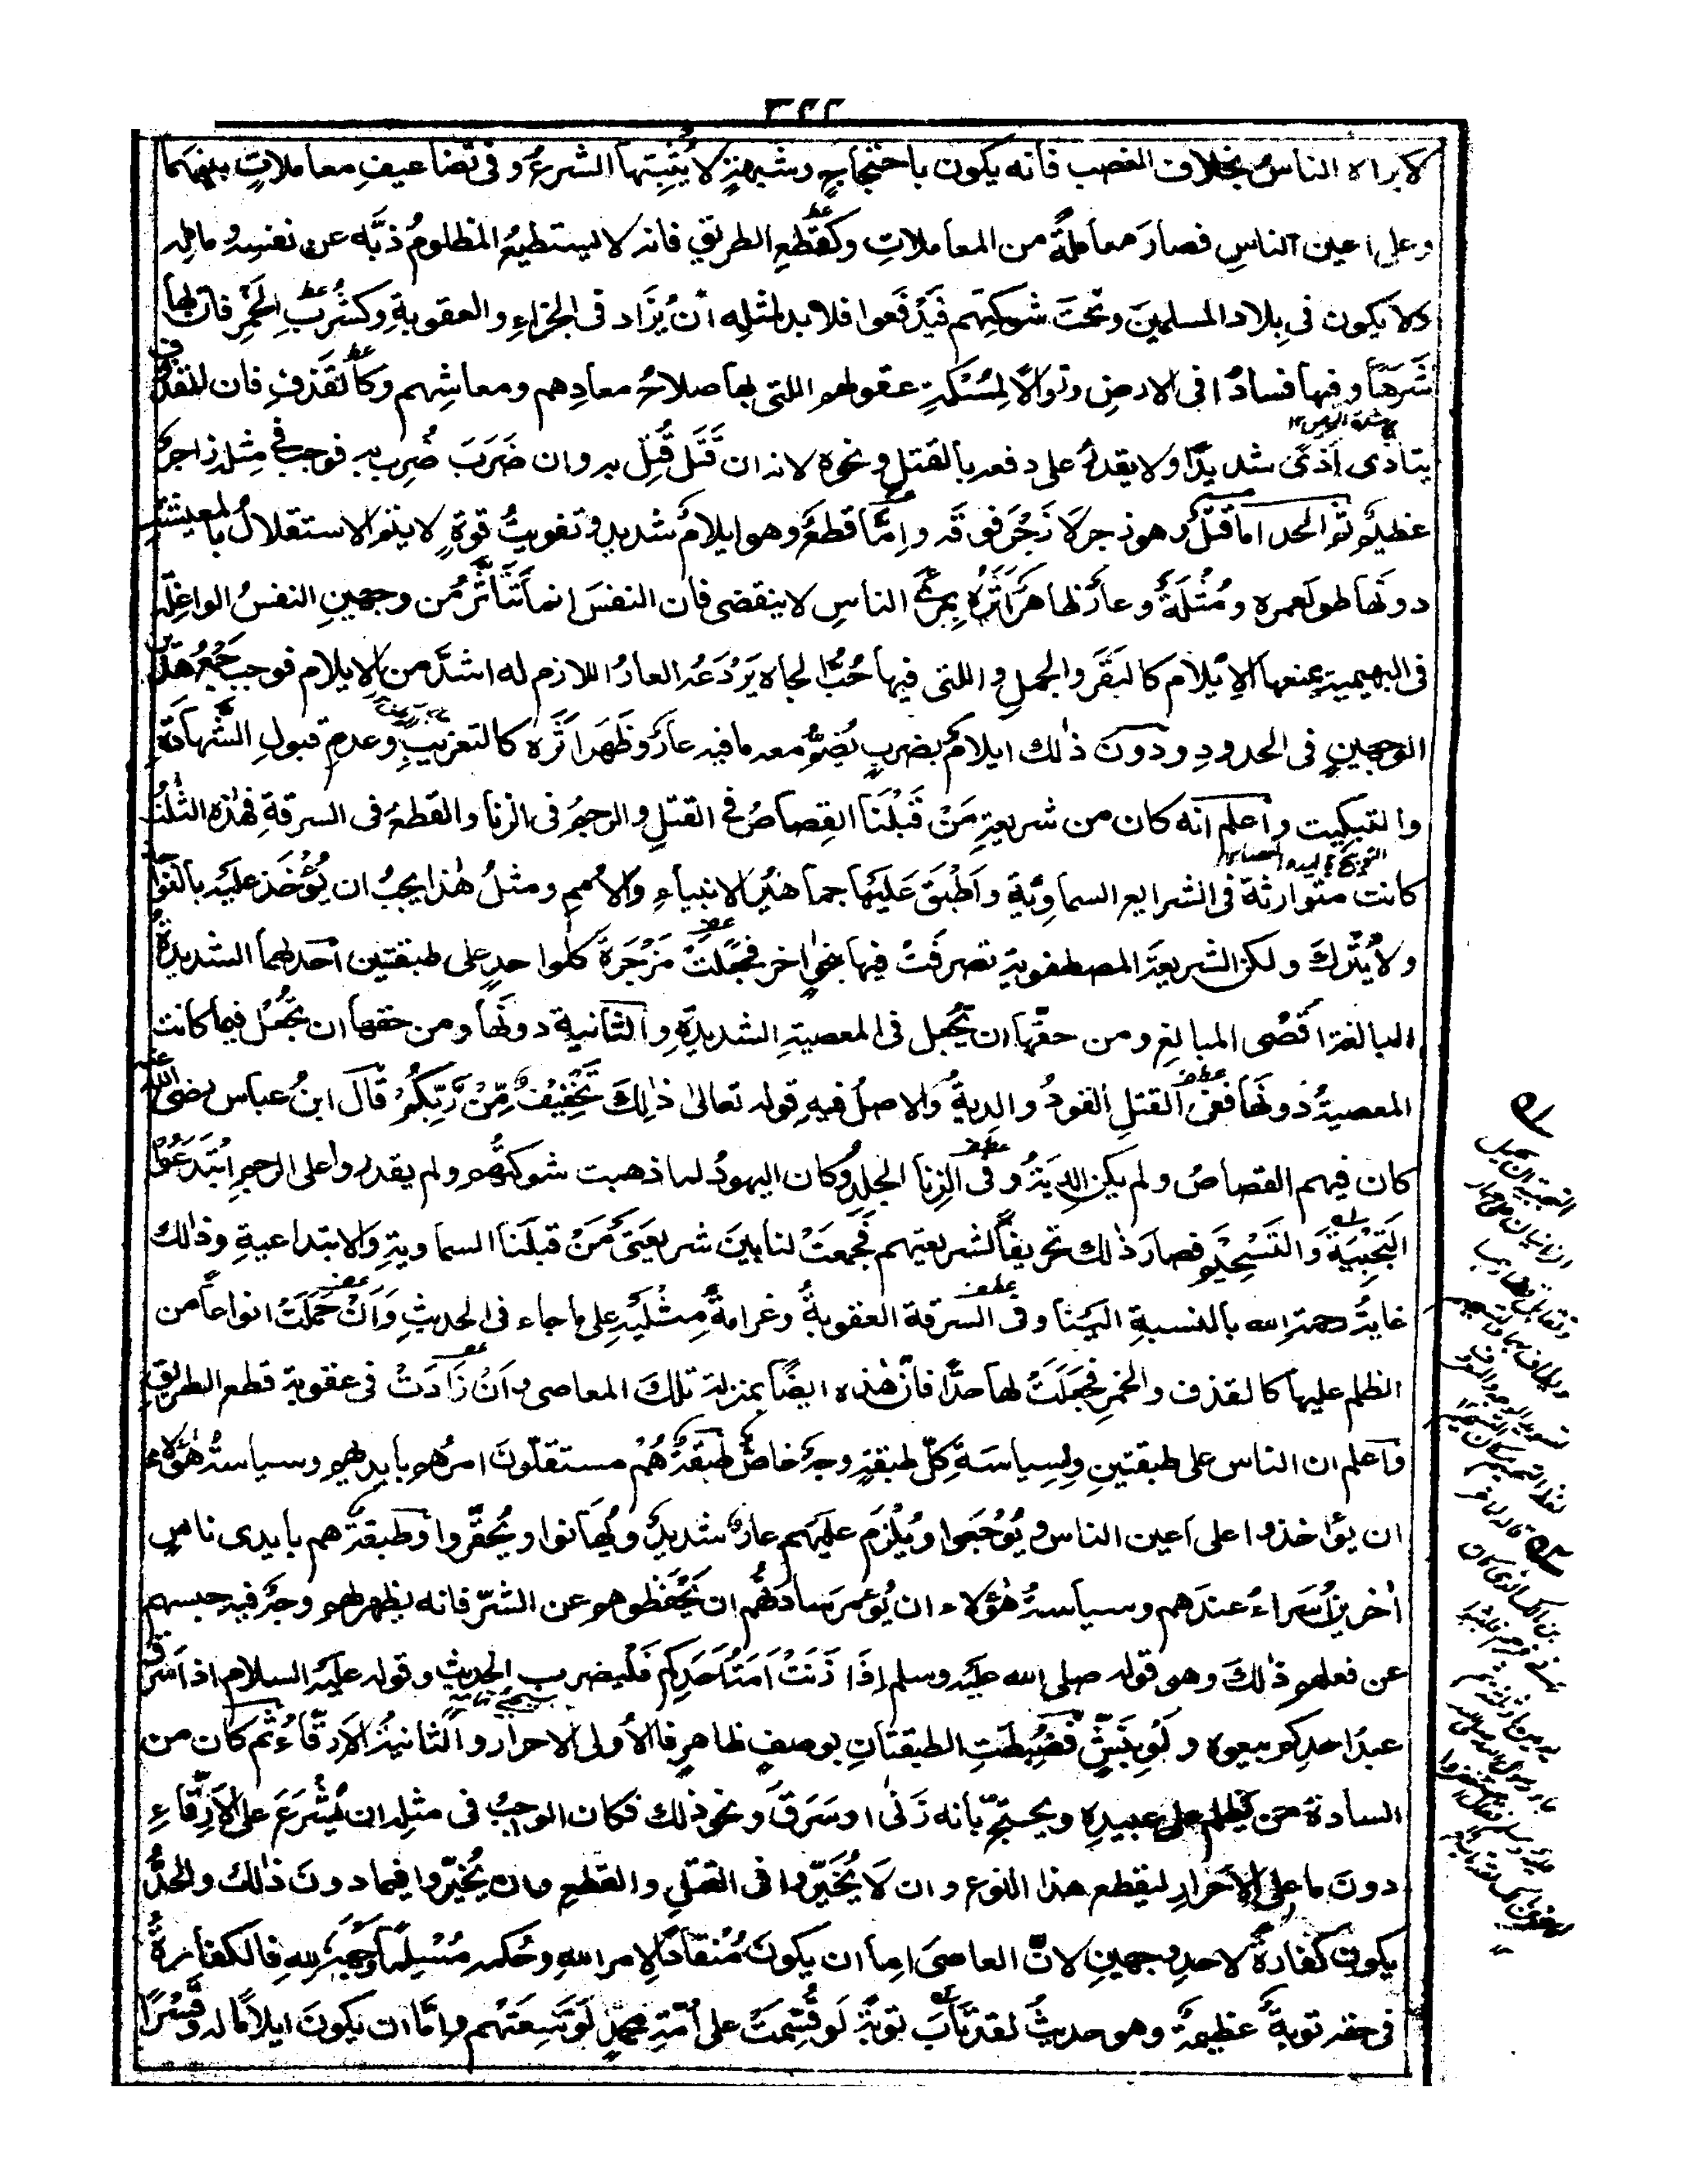 ٣٢٢
لا يراه الناسُ بخلاف الغصب فانه يكون باحتجاجٍ وشبهةٍ لا يُثبِتها الشرعُ وفى تضاعيفِ معاملاتٍ بينهما
وعلى اعين الناسِ فصارَ معاملةً من المعاملاتِ وكقطعِ الطريقِ فانه لا يستطيعُ المظلومُ ذبَّه عن نفسِه وماله
ولا يكون فى بِلاد المسلمينَ وتحتَ شوكتِهم فيَدْفَعوا فلا بد لمثلِه انْ يُزَاد فى الجزاءِ والعقوبةِ وكشُربِ الخمرِ فان لها
شَرَهًا وفيها فسادًا فى الارضِ وزوالًا لِمُسْكةِ عقولهم اللتى بها صلاحُ معادِهم ومعاشِهم وكالقَذفِ فان المقذوف
يتاذى اَذًى شديدًا ولا يقدرُ على دفعه بالقتلِ ونحوه لانه ان قَتَل قُتِل به وان ضَرَبَ ضُرِب به فوجب فى مِثله زاجرٌ
عظيمٌ ثم الحد اما قتلٌ وهو زجر لا زَجْرَ فوقه وامَّا قطعٌ وهو ايلامٌ شديدٌ وتفويتُ قوةٍ لا يتم الاستقلالُ بالمعيشةِ
دونها طولَ عمره ومُثْلَةٌ وعارٌ ظاهرٌ اَثَرُه بمرئَى الناسِ لا ينقضى فان النفسَ انما تَتَأثَّر من وجهينِ النفسُ الواغلة
فى البهيميةِ يمنعها الاِيْلام كالبَقَر والجملِ واللتى فيها حُبُّ الجاه يَرْدَعُه العارُ اللازم له اشدَّ من الايلام فوجب جَمْعُ هذين
الوجهينِ فى الحدودِ ودونَ ذٰلك ايلامٌ بضربٍ يُضَمُّ معه ما فيه عارٌ وظَهَر اَثَرُه كالتغريبِ وعدمِ قبولِ الشهادةِ
والتبكيت واعلم انه كان من شريعةِ مَنْ قَبْلَنَا القِصاصُ فى القتلِ والرجمُ فى الزنا والقطعُ فى السرقةِ فهٰذه الثلٰثُ
كانت متوارثةً فى الشرايع السماوِيّةِ واَطْبَقَ عَلَيْها جماهيرُ الانبياءِ والاُممِ ومثلُ هٰذا يجبُ ان يُؤْخَذ عليه بالنواجذ
ولا يُتْرك ولكن الشريعةَ المصطفويةَ تصرفَتْ فيها بنحوٍ اٰخر فجعلَتْ مَزْجَرةَ كلِّ واحدٍ على طبقتين احدٰهما الشديدةُ
البالغة اقصٰى المبالغِ ومن حقّها ان تُجْعل فى المعصيةِ الشديدةِ والثانيةُ دونَها ومن حقها ان تُجْعَل فيما كانت
المعصيةُ دونَها ففى القتلِ القودُ والديةُ والاصلُ فيه قوله تعالىٰ ذٰلِكَ تَخْفِيْفٌ مِّنْ رَّبِّكُمْ قال ابنُ عباس رضى الله عنه
كان فيهم القصاصُ ولم يكن الديةُ وفى الزنا الجلدُ وكان اليهودُ لما ذهبت شوكتُهم ولم يقدروا على الرجمِ ابْتَدَعُوْا
التَجْبِيَةَ والتَسْحِيْم فصارَ ذٰلك تحريفًا لشريعتهم فجُمعَتْ لنا بينَ شريعتَىْ مَنْ قبلَنا السماويةِ والابتداعيةِ وذٰلك
غايةُ رحمة الله بالنسبةِ الينا وفى السرقة العقوبةُ وغرامةُ مِثْلَيْهِ على ما جاء فى الحديثِ وَاَنْ حَمَلَتْ انواعًا من
الظلم عليها كالقذف والخمرِ فجعَلَتْ لها حدًّا فانّ هٰذه ايضًا بمنزلة تلكَ المعاصى وَاَنْ زَادَتْ فى عقوبة قطع الطريقِ
واعلم ان الناس على طبقتينِ ولِسياسَةِ كلِّ طبقةٍ وجهٌ خاصٌّ طبقةٌ هُمْ مستقلّونَ امرُهم بايديهم وسياسةُ هٰؤلاء
ان يؤاخذوا على اعين الناس ويُوْجَعوا ويُلْزَم عليهم عارٌ شديدٌ ويُهَانوا ويُحَقَّروا وطبقةٌ هم بايدى ناسٍ
اٰخرينَ اُسَراءُ عندهم وسياسةُ هٰؤلاء ان يُؤْمر سادتُهم ان يَحْفَظوهم عن الشرّ فانه يظهر لهم وجهٌ فيه حبسهم
عن فعلهم ذٰلك وهو قوله صلى الله عليه وسلم اِذَا زَنَتْ اَمَةُ اَحَدِكم فليضرب الحديث وقوله عليه السلام اذا سَرَقَ
عبدُ احدِكم بيعوه ولَوْ بِنَشٍّ فضُبِطَتِ الطبقتانِ بوصفٍ ظاهرٍ فالاُولى الاحرار والثانيةُ الاَرِقّاءُ ثم كان من
السادة مَن يظلم على عبيده ويحتجّ بانه زَنٰى او سَرَقَ ونحو ذٰلك فكان الواجبُ فى مثله ان يُشْرَعَ على الاَرِقّاءِ
دونَ ما على الاحرارِ ليقطع هذا النوع وان لَا يُخَيَّروا فى القتلِ والقطعِ وان يُخَيَّروا فيما دونَ ذٰلك والحدُّ
يكون كفارةً لاحدِ وجهينِ لانّ العاصىَ اما ان يكونَ مُنْقادًا لامر اللهِ وحُكمه مُسْلِمًا وجهَه للهِ فالكفارةُ
فى حقه توبةٌ عظيمةٌ وهو حديثُ لقد تَابَ توبةً لَو قُسِّمَتْ على اُمّةِ محمّدٍ لَوَسِعَتْهم وامَّا ان يكونَ ايلامًا له وقَسْرًا